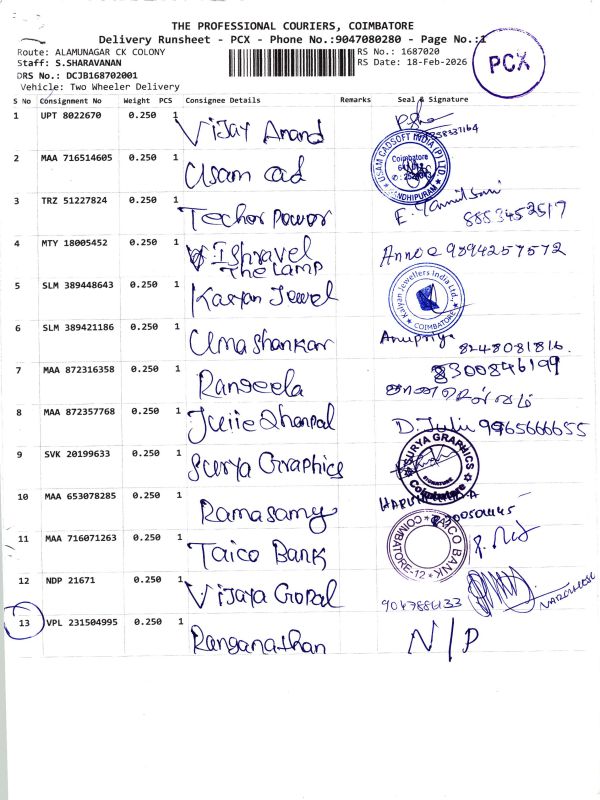 THE PROFESSIONAL COURIERS, COIMBATORE
Delivery Runsheet - PCX - Phone No.:9047080280 - Page No.:1
Route: ALAMUNAGAR CK COLONY
RS No.: 1687020
Staff: S.SHARAVANAN
RS Date: 18-Feb-2026
PCX
DRS No.: DCJB168702001
Vehicle: Two Wheeler Delivery
S No Consignment No Weight PCS Consignee Details Remarks Seal & Signature
1 UPT 8022670 0.250 1 Vijay Anand
2 MAA 716514605 0.250 1 Usam cad
USAM CADSOFT INDIA (P) LTD. Coimbatore GANDHIPURAM
3 TRZ 51227824 0.250 1 Techor power E. Yamil 8853452517
4 MTY 18005452 0.250 1 Ishravel The Lamp 9894257572
5 SLM 389448643 0.250 1 Kalyan Jewel
Kalyan Jewellers India Ltd., COIMBATORE
6 SLM 389421186 0.250 1 Uma shankar Anupriya 8248081816.
7 MAA 872316358 0.250 1 Rangeela 8300846199
8 MAA 872357768 0.250 1 Julie Dhanpal D. Julie 9965666655
9 SVK 20199633 0.250 1 Surya Graphics
SURYA GRAPHICS SIGNATURE Coimbatore
10 MAA 653078285 0.250 1 Ramasamy
11 MAA 716071263 0.250 1 Taico Bank
TAICO BANK COIMBATORE-12
12 NDP 21671 0.250 1 Vijaya Gopal
13 VPL 231504995 0.250 1 Ranganathan N/P